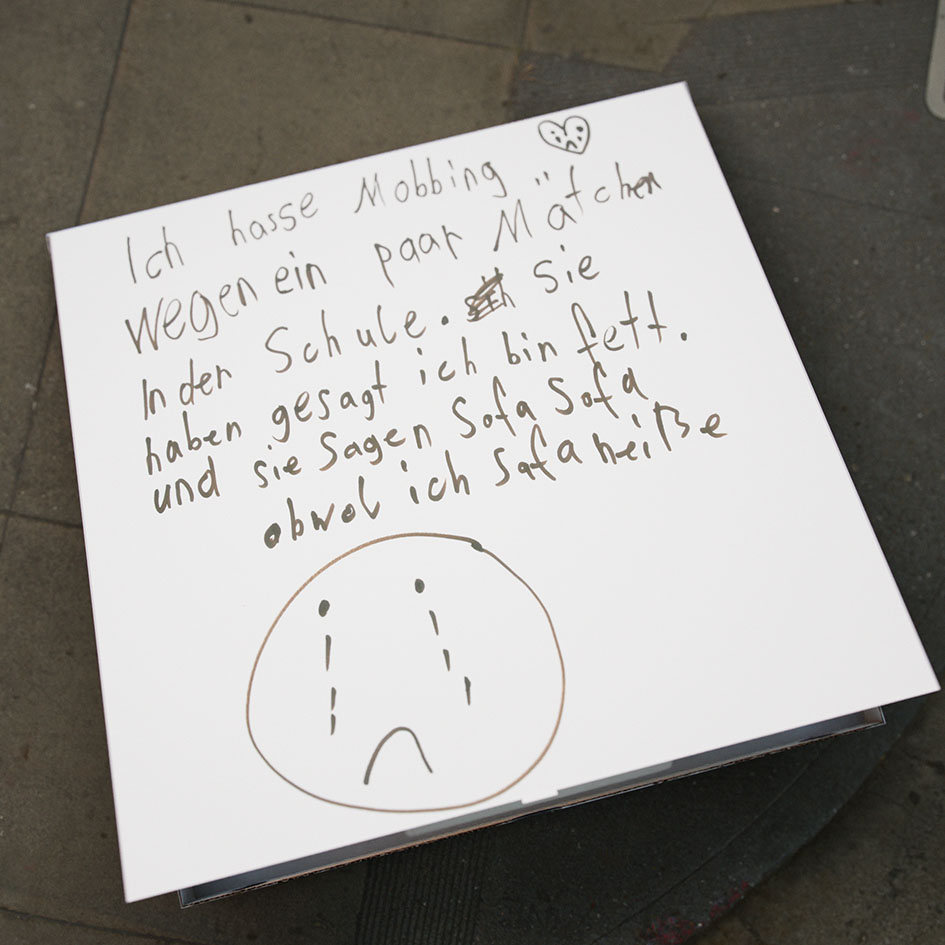 Ich hasse Mobbing
wegen ein paar Mätchen
In der Schule. Sie
haben gesagt ich bin fett.
und sie sagen Sofa Sofa
obwol ich Safa heiße